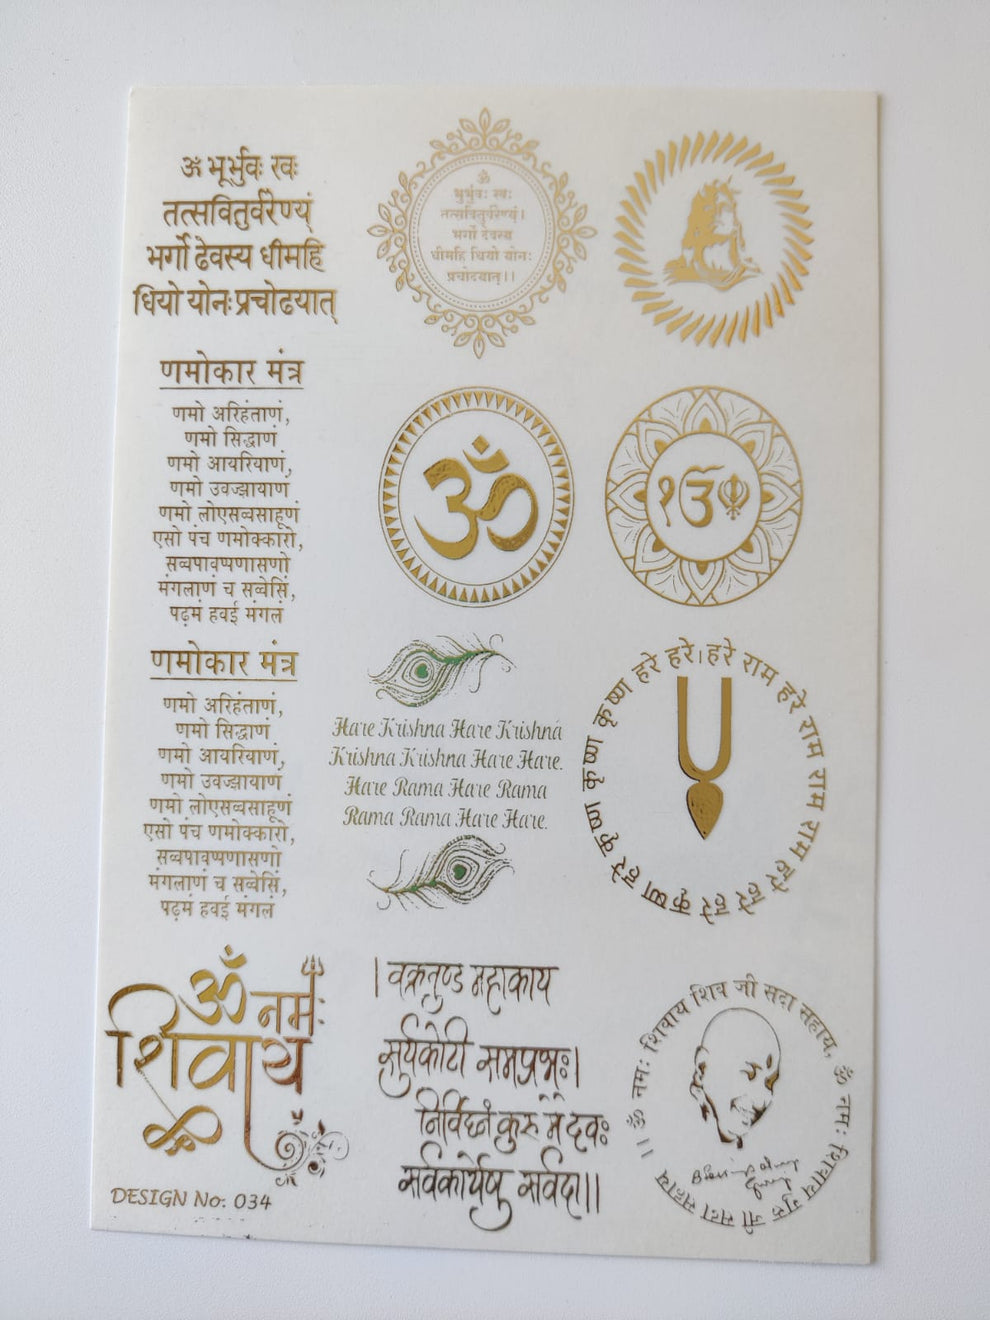 ॐ भूर्भुवः स्वः
तत्सवितुर्वरेण्यं
भर्गो देवस्य धीमहि
धियो योनः प्रचोदयात्
ॐ
भुर्भुवः स्वः
तत्सवितुर्वरेण्यं।
भर्गो देवस्य
धीमहि धियो योनः
प्रचोदयात्।।
णमोकार मंत्र
णमो अरिहंताणं,
णमो सिद्धाणं
णमो आयरियाणं,
णमो उवज्झायाण
णमो लोएसव्वसाहूणं
एसो पंच णमोक्कारो,
सव्वपावप्पणासणो
मंगलाणं च सव्वेसिं,
पढ़मं हवई मंगलं
ॐ
१ੴ
णमोकार मंत्र
णमो अरिहंताणं,
णमो सिद्धाणं
णमो आयरियाणं,
णमो उवज्झायाणं
णमो लोएसव्वसाहूणं
एसो पंच णमोक्कारो,
सव्वपावप्पणासणो
मंगलाणं च सव्वेसिं,
पढ़मं हवई मंगलं
Hare Krishna Hare Krishna
Krishna Krishna Hare Hare.
Hare Rama Hare Rama
Rama Rama Hare Hare.
हरे कृष्ण हरे कृष्ण कृष्ण कृष्ण हरे हरे।हरे राम हरे राम राम राम हरे हरे
ॐ नमः
शिवाय
। वक्रतुण्ड महाकाय
सुर्यकोटी समप्रभः।
निर्विघ्नं कुरु मे देवः
सर्वकार्येषु सर्वदा।।
।। ॐ नमः शिवाय शिव जी सदा सहाय, ॐ नमः शिवाय गुरु जी सदा सहाय
DESIGN No: 034